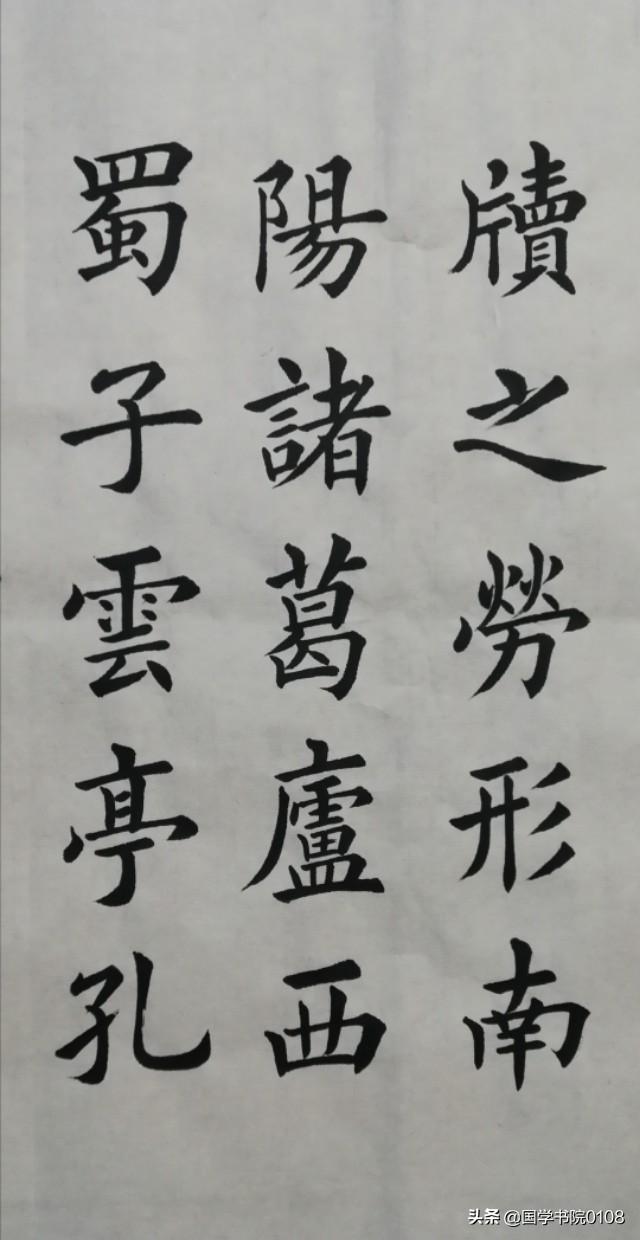 牘之勞形南
陽諸葛廬西
蜀子雲亭孔
头条 @国学书院0108